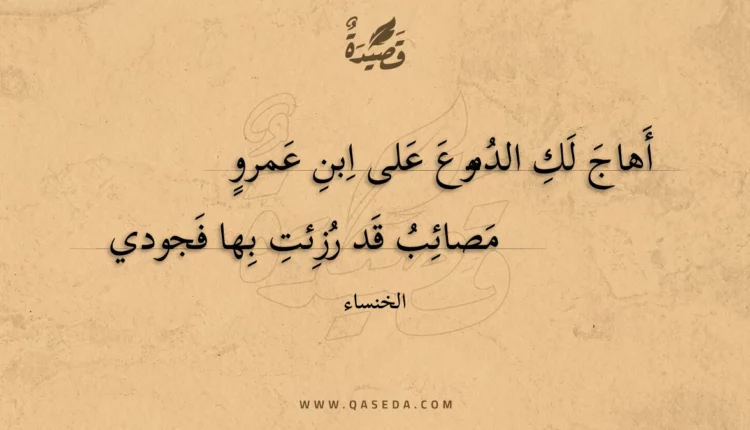 قَصِيدَةٌ
أَهاجَ لَكِ الدُموعَ عَلى اِبنِ عَمروٍ
مَصائِبُ قَد رُزِئتِ بِها فَجودي
الخنساء
WWW.QASEDA.COM